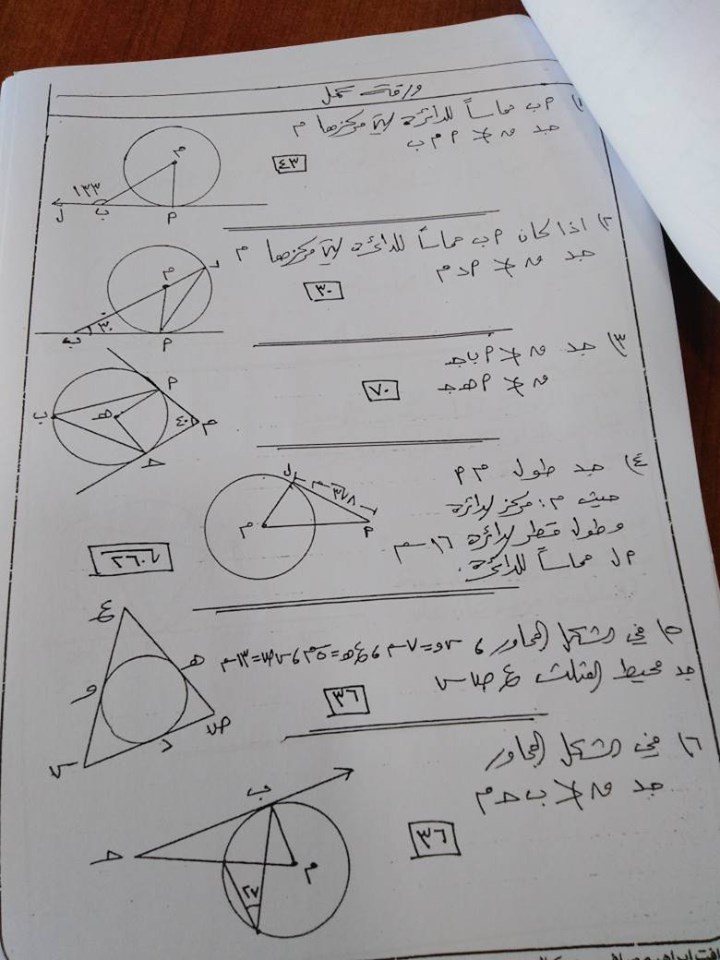 ورقة عمل
١) ٢ب مماساً للدائرة التي مركزها م
جد ق∡ ٢م ب
٤٣
م
١٣٣
ل
ب
٢
٢) اذا كان ٢ب مماساً للدائرة التي مركزها م
جد ق∡ ٢د م
٣٠
م
د
٣٠
ب
٢
٣) جد ق∡ ٢ب جـ
ق∡ ٢هـ جـ
٧٠
٢
ب
هـ
٤٠
م
جـ
٤) جد طول م٢
حيث م: مركز الدائرة
وطول قطر الدائرة ١٦سم
٢ل مماساً للدائرة
ل
م
٢
٥) في الشكل المجاور، س و=٧سم، ع هـ=٥سم، س ص=١٣سم
جد محيط المثلث ع ص س
٣٦
ع
هـ
و
ص
د
س
٦) في الشكل المجاور
جد ق∡ ب حـ م
٣٦
ب
حـ
م
٢٧